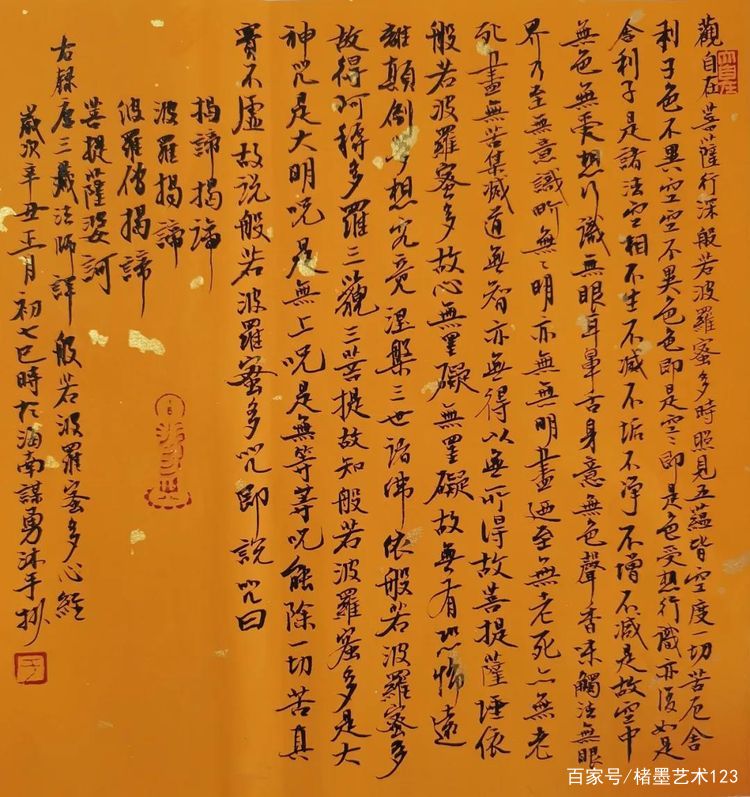 觀自在菩薩行深般若波羅蜜多時照見五蘊皆空度一切苦厄舍
利子色不異空空不異色色即是空々即是色受想行識亦復如是
舍利子是諸法空相不生不滅不垢不净不增不減是故空中
無色無受想行識無眼耳鼻舌身意無色聲香味觸法無眼
界乃至無意識界無々明亦無無明盡迺至無老死亦無老
死盡無苦集滅道無智亦無得以無所得故菩提薩埵依
般若波羅蜜多故心無罣礙無罣礙故無有恐怖遠
離顛倒夢想究竟涅槃三世諸佛依般若波羅蜜多
故得阿耨多羅三藐三菩提故知般若波羅蜜多是大
神咒是大明咒是無上咒是無等等咒能除一切苦真
實不虛故說般若波羅蜜多咒即說咒曰
揭諦揭諦
波羅揭諦
波羅僧揭諦
菩提薩婆訶
右録唐三藏法師譯般若波羅蜜多心經
歲次辛丑正月初七巳時於海南謀勇沐手抄
百家号/楮墨艺术123